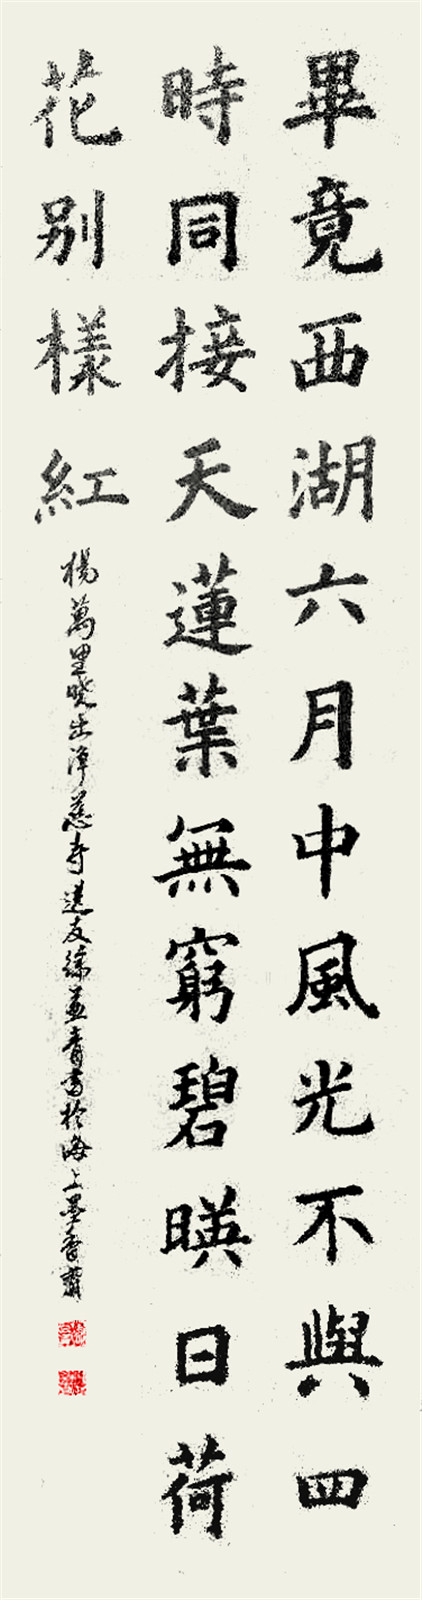 畢竟西湖六月中風光不與四
時同接天蓮葉無窮碧暎日荷
花别樣紅
楊萬里曉出淨慈寺送友徐並青書於海上墨香齋